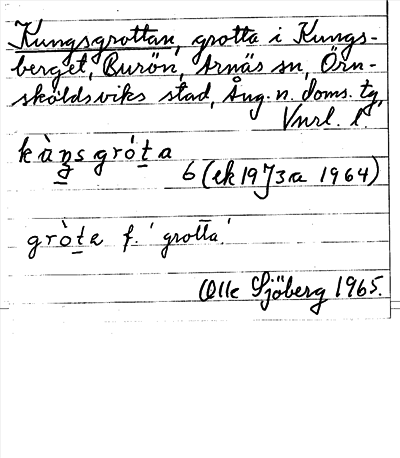 Kungsgrottan, grotta i Kungs-
berget, Burön, Arnäs sn, Örn-
sköldsviks stad, Ång. n. doms. tg,
Vnrl. l.
kàŋsgróta
6 (ek 19J3a 1964)
gròta f. 'grotta'
Olle Sjöberg 1965.